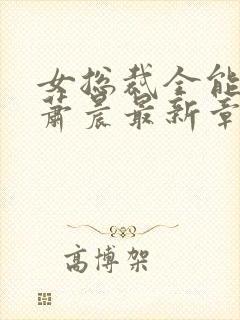 女总裁全能
萧晨最新章
高博架